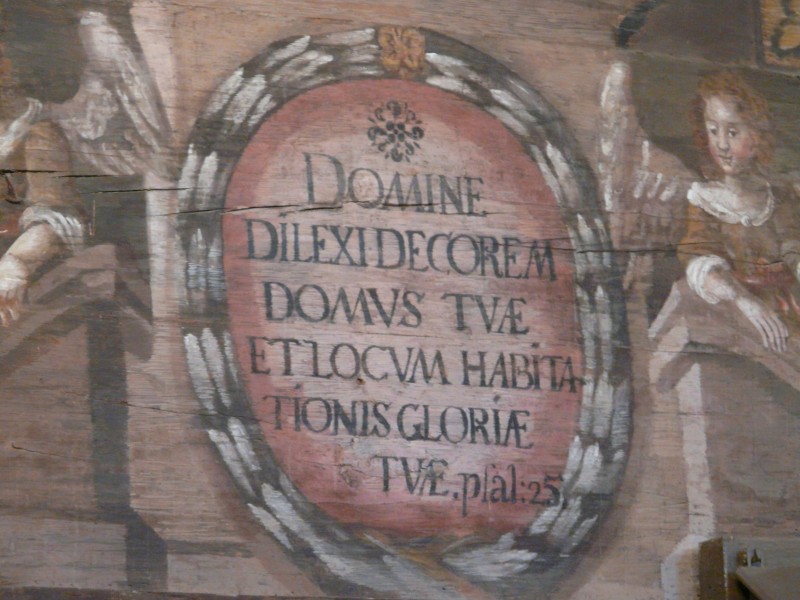 DOMINE
DILEXI DECOREM
DOMVS TVÆ
ET LOCVM HABITA-
TIONIS GLORIÆ
TVÆ. pſal: 25.